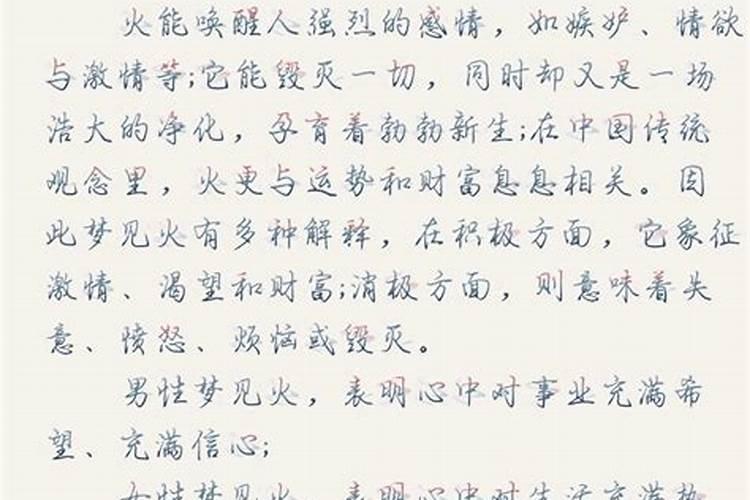 火能唤醒人强烈的感情，如嫉妒、情欲
与激情等;它能毁灭一切，同时却又是一场
浩大的净化，孕育着勃勃新生;在中国传统
观念里，火更与运势和财富息息相关。因
此梦见火有多种解释，在积极方面，它象征
激情、渴望和财富;消极方面，则意味着失
意、愤怒、烦恼或毁灭。
男性梦见火，表明心中对事业充满希
望、充满信心;
女性梦见火，表明心中对生活充满热